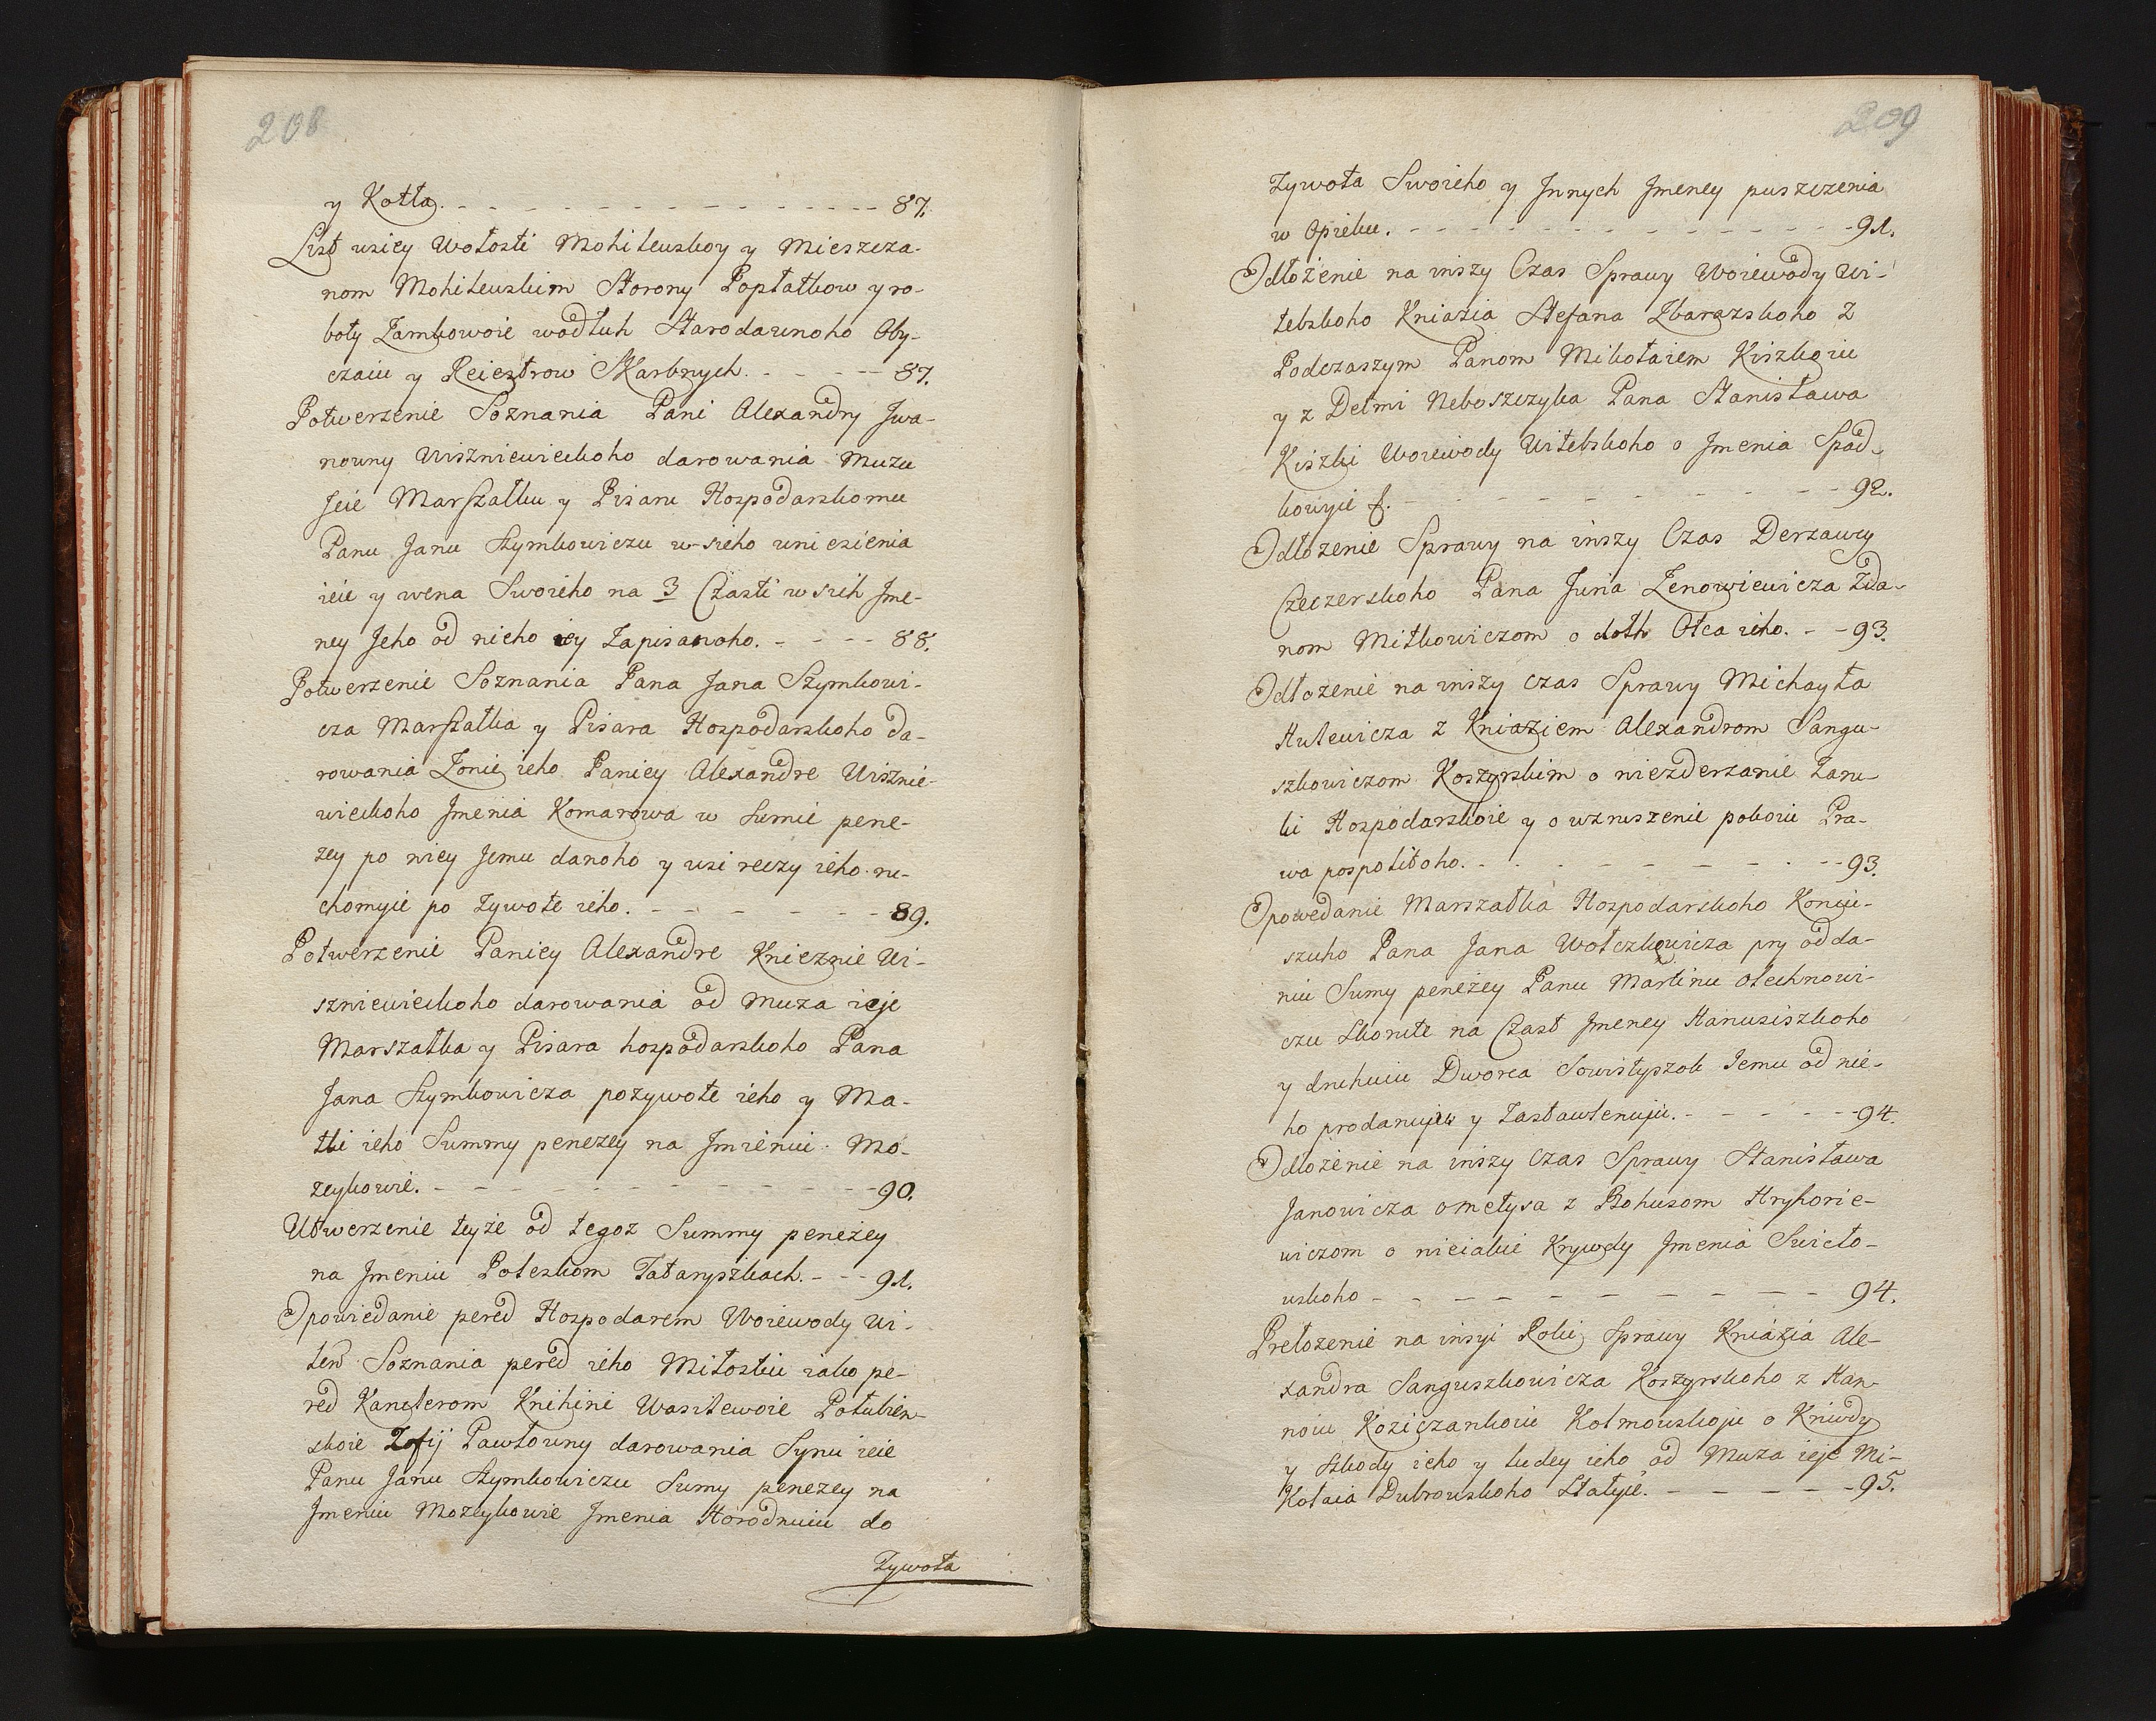 208
y Kotła. - - - - - - - - - - - - - - - - 87.
List wsiey Wołosti Mohilewskoy y Mieszcza-
nom Mohilewskim Storony Popłatkow y ro-
boty Zamkowoie wodłuh Starodawnoho Oby-
czaiu y Reiestrow Skarbnych. - - - - - 87.
Potwerzenie Soznania Pani Alexandry Jwa-
nowny Wiszniewieckoho darowania Mużu
Jeie Marszałku y Pisaru Hospodarskomu
Panu Janu Szymkowiczu w-sieho uniesienia
ieie y wena Swoieho na 3 Czasti w sich Jme-
ney Jeho od nieho iey Zapisanoho. - - - - 88.
Potwerzenie Soznania Pana Jana Szymkowi-
cza Marszałka y Pisara Hospodarskoho da-
rowania Zonie ieho Paniey Alexandre Wisznie-
wieckoho Jmenia Komarowa w Sumie pene-
zey po niey Jemu danoho y wsi reczy ieho ru-
chomyie po Zywote ieho. - - - - - - - 89.
Potwerzenie Paniey Alexandre Knieznie Wi-
szniewieckoho darowania od Muza ieje
Marszałka y Pisara hospodarskoho Pana
Jana Szymkowicza pozywote ieho y Ma-
tki ieho Summy penezey na Jmieniu Mo-
zeykowie. - - - - - - - - - - - - - 90.
Utwerzenie teyże od tegoz Summy peneżey
na Jmeniu Poleskom Tataryszkach. - - - 91.
Opowiedanie pered Hospodarem Woiewody Wi-
len Soznania pered ieho Miłostiu iako pe-
red Kanclerom Knihini Wasilewoie Połubien-
skoie Zofij Pawłowny darowania Synu ieie
Panu Janu Szymkowiczu Sumy penezey na
Jmeniu Mozeykowie Jmenia Horodnuiu do
Zywota
209
Zywota Swoieho y Jnnych Jmeney puszczenia
w Opieku. - - - - - - - - - - - - - - 91.
Odłożenie na inszy Czas Sprawy Woiewody Wi-
tebskoho Kniazia Stefana Zbarazskoho z
Podczaszym Panom Mikołaiem Kiszkoiu
y z Detmi Neboszczyka Pana Stanisława
Kiszki Woiewody Witebskoho o Jmenia Spad-
kowyie - - - - - - - - - - - 92.
Odłozenie Sprawy na inszy Czas Derzawcy
Czeczerskoho Pana Juria Zenowiewicza Zda-
nom Mitkowiczom o dolh Otca ieho. - - 93.
Odłozenie na inszy czas Sprawy Michayła
Hulewicza z Kniaziem Alexandrom Sangu-
szkowiczom Koszyrskim o niezderzanie Zaru-
ki Hospodarskoie y o wzruszenie pokoiu Pra-
wa pospolitoho. - - - - - - - - - - 93.
Opowedanie Marszałka Hospodarskoho Koniu-
szuho Pana Jana Wołczkowicza pry odda-
niu Sumy penezey Panu Martinu Olechnowi-
czu Skorute na Czast Jmeney Hanusiszkoho
y druhuiu Dworca Sowistyszok Jemu od nie-
ho prodanujew y Zastawlenujiu. - - - - - 94.
Odłożenie na inszy czas Sprawy Stanisława
Janowicza ometysa z Bohusom Hryhorie-
wiczom o nieiakie Krywdy Jmenia Swieto-
uskoho - - - - - - - - - - - 94.
Prełozenie na insyi Roki Sprawy Kniazia Ale-
xandra Sanguszkowicza Koszyrskoho z Han-
noiu Koziczankoiu Kołmowskoju o Kriwdy
y Szkody ieho y ludey ieho od Muza ieje Mi-
Kołaia Dubrowskoho Stałyie. - - - - - 95.